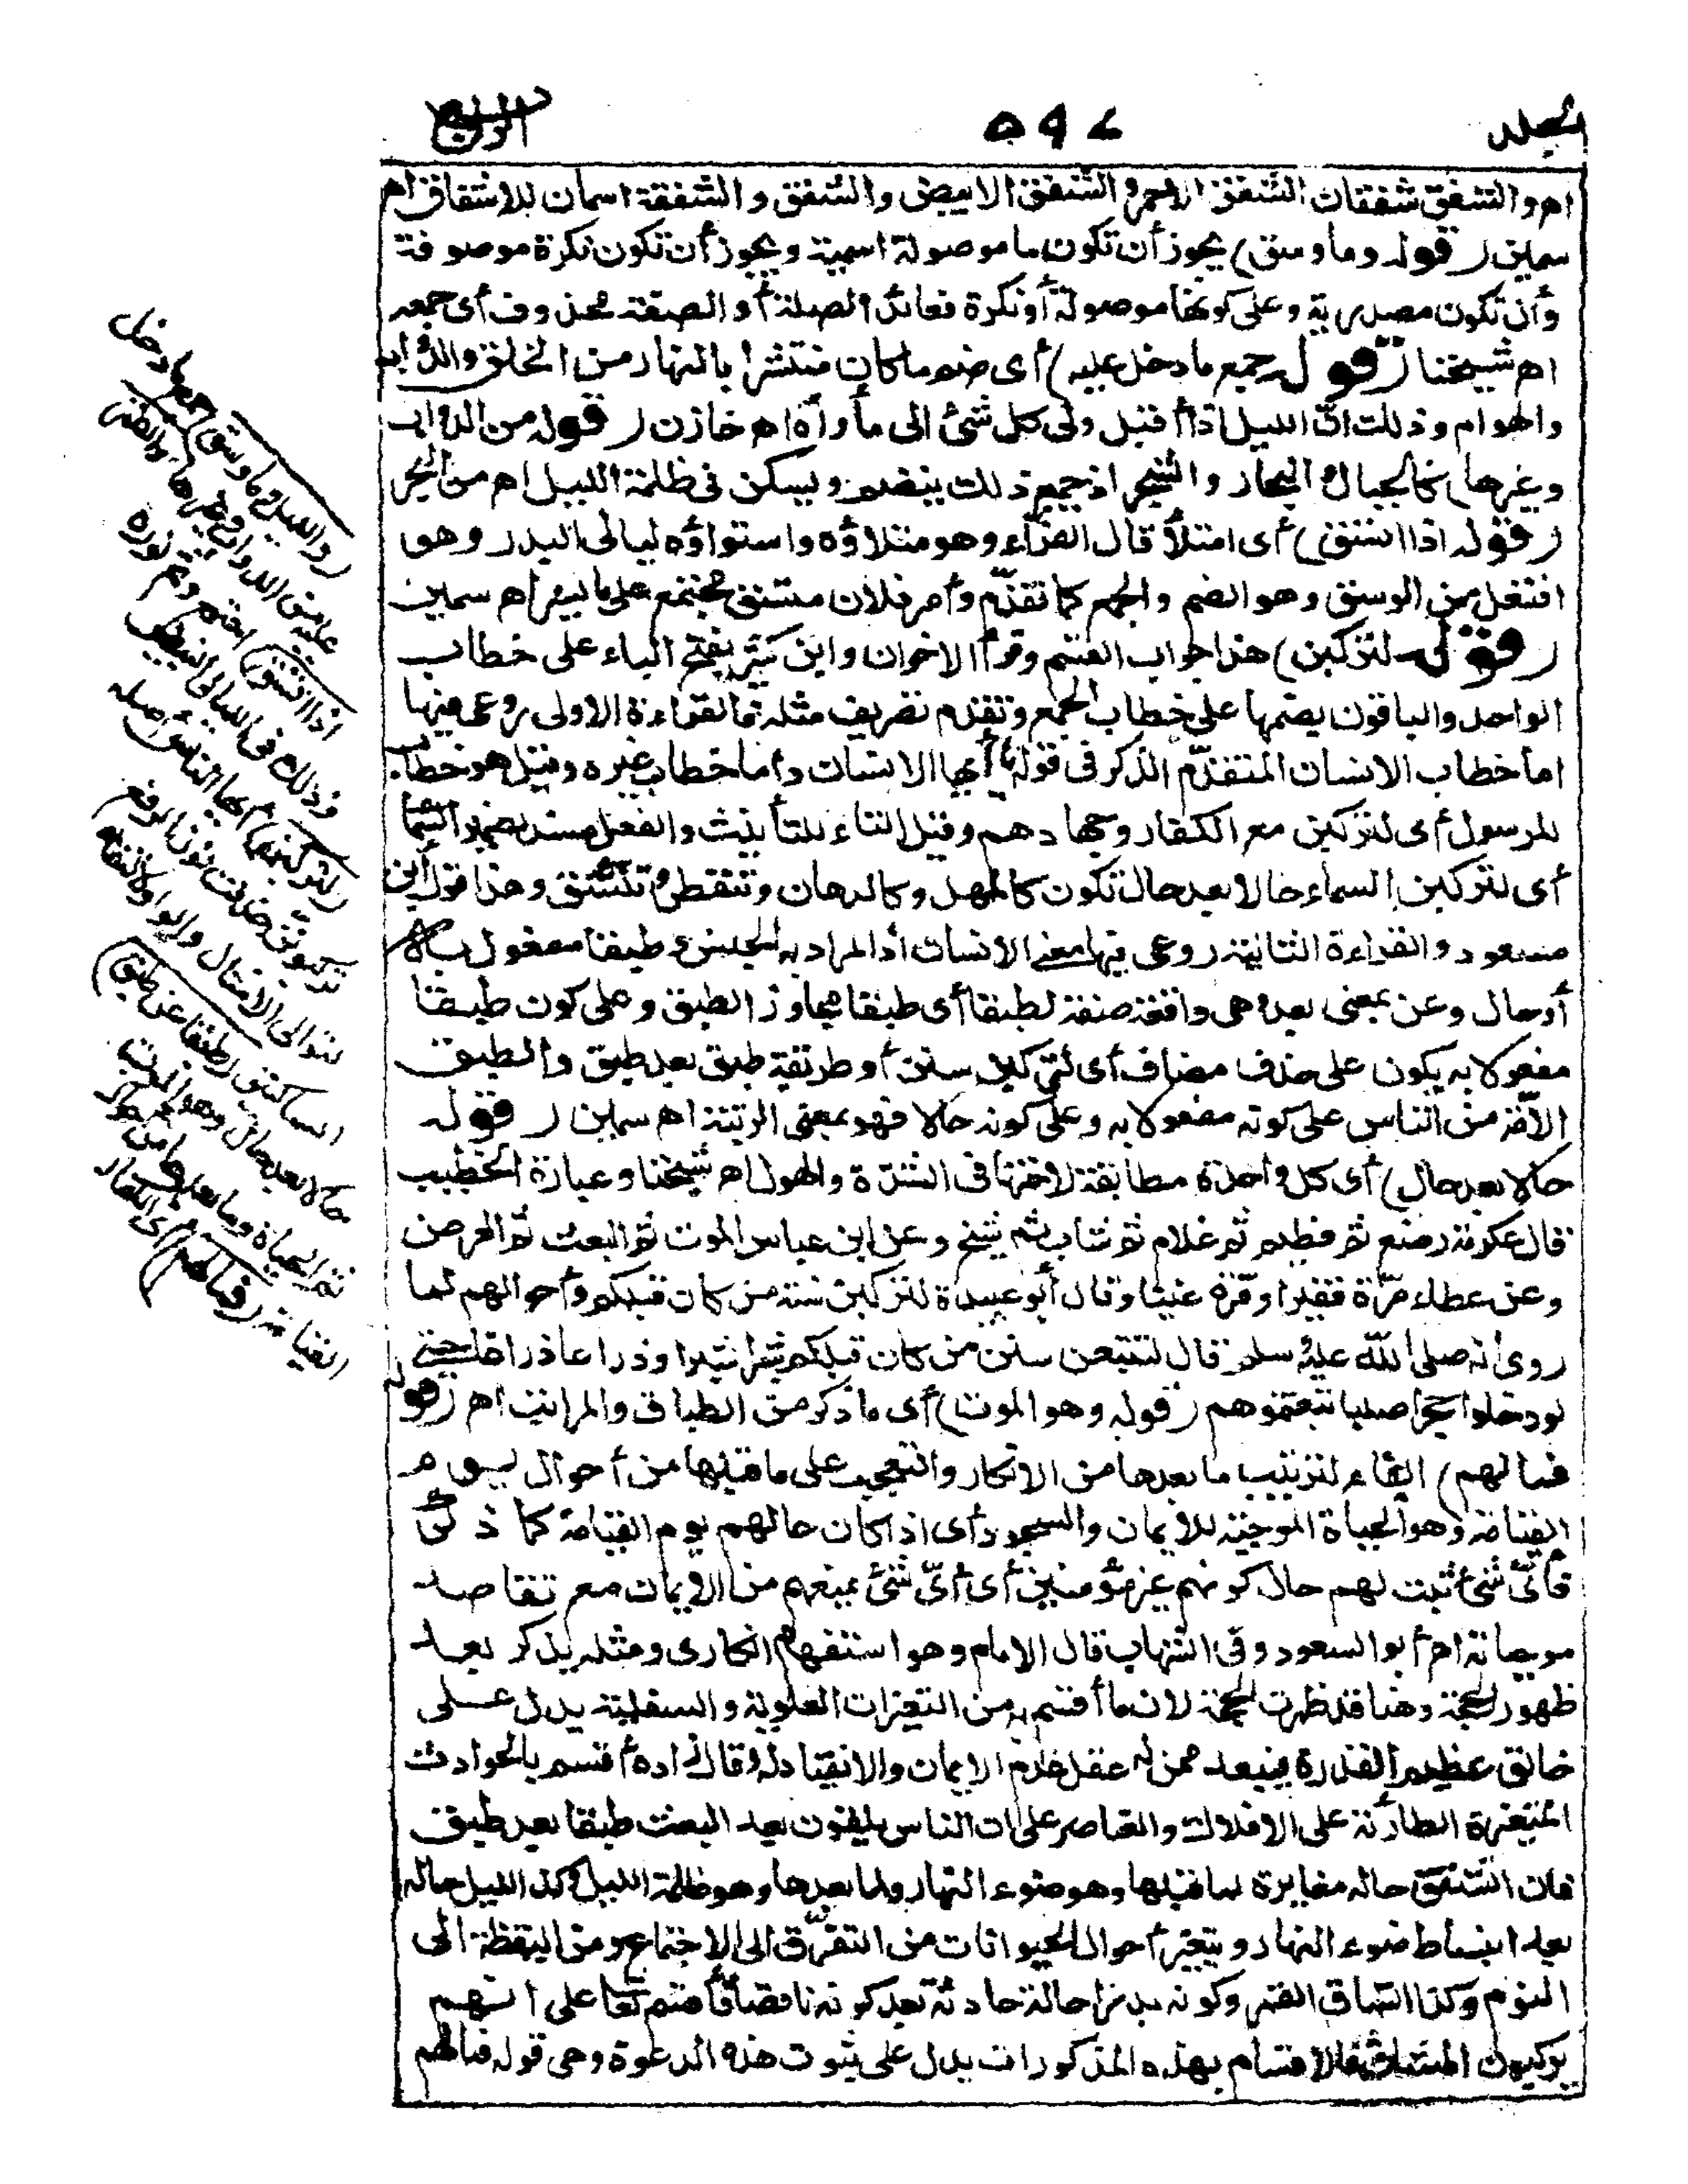 المجلد
٥٩٤
الرابع
اهـ والشفق شفقان الشفق الاحمر والشفق الابيض والشفق والشفقة اسمان للاشفاق اهـ
سمين (قوله وما وسق) يجوز أن تكون ما موصولة اسمية ويجوز أن تكون نكرة موصوفة
وأن تكون مصدرية وعلى كونها موصولة أو نكرة فعائد الصلة أو الصفة محذوف أى جمعه
اهـ شيخنا (قوله جمع ما دخل عليه) أى ضم ما كان منتشرا بالنهار من الخلق والدواب
والهوام وذلك انّ الليل اذا أقبل ولى كل شئ الى مأواه اهـ خازن (قوله من الدواب
وغيرها) كالجبال والبحار والشجر اذ جميع ذلك ينضم ويسكن فى ظلمة الليل اهـ من البحر
(قوله اذا اتسق) أى امتلأ قال الفرّاء وهو امتلاؤه واستواؤه ليالى البدر وهو
افتعل من الوسق وهو الضم والجمع كما تقدّم وأمر فلان متسق مجتمع على ما يسر اهـ سمين
(قوله لتركبن) هذا جواب القسم وقرأ الاخوان وابن كثير بفتح الباء على خطاب
الواحد والباقون بضمها على خطاب الجمع وتقدم تصريف مثله فالقراءة الاولى روعى فيها
اما خطاب الانسان المتقدّم الذكر فى قوله يا أيها الانسان وأما خطاب غيره وقيل هو خطاب
للرسول أى لتركبن مع الكفار وجهادهم وقيل التاء للتأنيث والفعل مسند لضمير السماء
أى لتركبن السماء حالا بعد حال تكون كالمهل وكالدهان وتنفطر وتنشق وهذا قول ابن
مسعود والقراءة الثانية روعى فيها معنى الانسان اذ المراد به الجنس وطبقا مفعول به
أو حال وعن بمعنى بعد وهى واقعة صفة لطبقا أى طبقا مجاوز الطبق وعلى كون طبقا
مفعولا به يكون على حذف مضاف أى لتركبن سنن أو طريقة طبق بعد طبق والطبق
الأمّة من الناس على كونه مفعولا به وعلى كونه حالا فهو بمعنى الرتبة اهـ سمين (قوله
حالا بعد حال) أى كل واحدة مطابقة لاختها فى الشدّة والهول اهـ شيخنا وعبارة الخطيب
قال عكرمة رضيع ثم فطيم ثم غلام ثم شاب ثم شيخ وعن ابن عباس الموت ثم البعث ثم العرض
وعن عطاء مرّة فقيرا ومرّة غنيا وقال أبو عبيدة لتركبن سنة من كان قبلكم وأحوالهم لما
روى انه صلى الله عليه وسلم قال لتتبعن سنن من كان قبلكم شبرا شبرا وذراعا ذراعا حتى
لو دخلوا جحر ضب لتبعتموهم (قوله وهو الموت) أى ما ذكر من الطباق والمراتب اهـ (قوله
فما لهم) الفاء لترتيب ما بعدها من الانكار والتعجب على ما قبلها من أحوال يوم
القيامة وهو الحياة الموجبة للايمان والسجود أى اذا كان حالهم يوم القيامة كما ذكر
فأىّ شئ ثبت لهم حال كونهم غير مؤمنين أى أىّ شئ يمنعهم من الايمان مع تعاضد
موجباته اهـ أبو السعود وفى الشهاب قال الامام وهو استفهام انكارى ومثله يذكر بعد
ظهور الحجة وهنا قد ظهرت الحجة لان ما أقسم به من التغيرات العلوية والسفلية يدل على
خالق عظيم القدرة فيبعد ممن له عقل عدم الايمان والانقياد له وقال زاده أقسم بالحوادث
المتغيرة الطارئة على الافلاك والعناصر على ان الناس يلقون بعد البعث طبقا بعد طبق
فان الشفق حالة مغايرة لما قبلها وهو ضوء النهار ولما بعدها وهو ظلمة الليل وكذا الليل حاله
بعد انبساط ضوء النهار ويتغير أحوال الحيوانات من التفرّق الى الاجتماع ومن اليقظة الى
النوم وكذا اتساق القمر وكونه بدرا حالة حادثة بعد كونه ناقصا فأقسم تعالى على انهم
يركبون المشاق فالاقسام بهذه المذكورات يدل على ثبوت هذه الدعوة وهى قوله فما لهم
(والليل وما وسق) جمع ما دخل
عليه من الدواب وغيرها (والقمر
اذا اتسق) اجتمع وتم نوره
وذلك فى الليالى البيض
(لتركبن) أيها الناس أصله
تركبونن حذفت نون الرفع
لتوالى الامثال والواو لالتقاء
الساكنين (طبقا عن طبق)
حالا بعد حال وهو الموت
ثم الحياة وما بعدها من أحوال
القيامة (فما لهم) أى الكفار